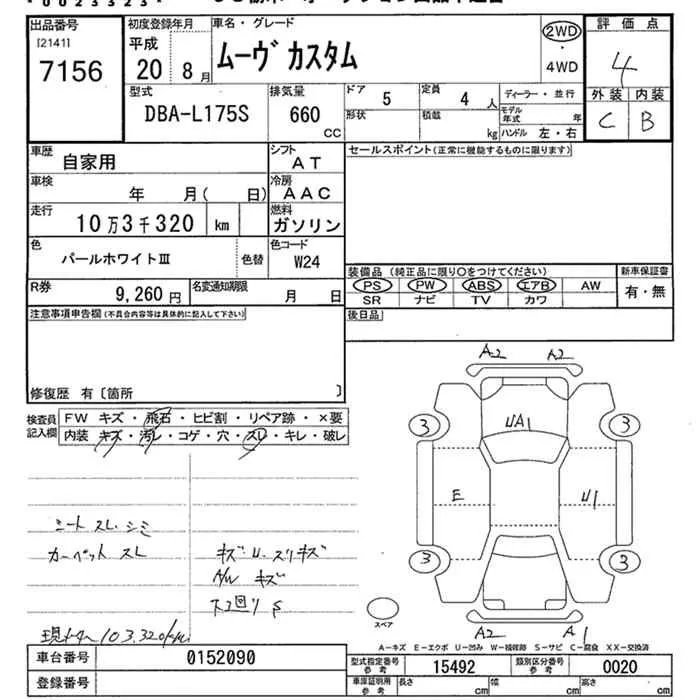 * 0 0 2 3 3 2 3 *
出品番号
[2141]
7156
初度登録年月
平成
20 8月
車名・グレード
ムーヴ カスタム
2WD
・
4WD
評 価 点
4
外装 内装
C B
型式
DBA-L175S
排気量
660
CC
ドア 5
定員 4 人
形状
積載 kg
ディーラー・並行
モデル年式 年
ハンドル 左・右
車歴
自家用
シフト
AT
車検
年 月( 日)
冷房
AAC
走行
10万3千320 km
燃料
ガソリン
色
パールホワイトⅢ
色替
色コード
W24
R券
9,260 円
名変通知期限
月 日
セールスポイント(正常に機能するものに限ります)
装備品 (純正品に限り○をつけてください)
PS PW ABS エアB AW
SR ナビ TV カワ
新車保証書
有・無
後日品
注意事項申告欄(不具合内容等は具体的に記入して下さい)
修復歴 有〔箇所 〕
検査員記入欄
FW キズ・飛石・ヒビ割・リペア跡・×要
内装・キズ・汚レ・コゲ・穴・スレ・キレ・破レ
シート スレ シミ
カーペット スレ
キズ U. スリキズ
A/W キズ
下回り S
現メーター 103,320km
A2 A2
UA1
3 3
E U1
3 3
A2 A1
スペア
A-キズ E-エクボ U-凹ミ W-補修跡 S-サビ C-腐食 XX-交換済
車台番号 0152090
登録番号
型式指定番号参考 15492
類別区分番号参考 0020
車庫証明用参考
長さ cm
幅 cm
高さ cm